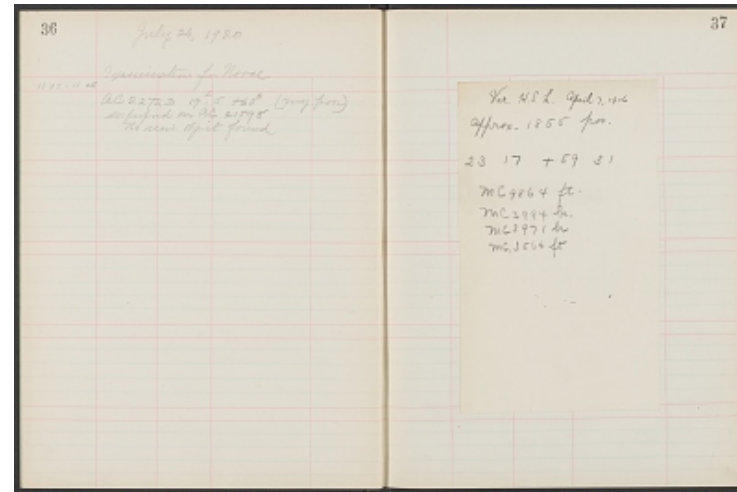 36
July 26, 1920
Examination for Novae
AC 22722 17h.5 +60° (my pos)
superposed on AC 21598
No new object found
37
Var H.S.L. April 7, 1916
approx. 1855 pos.
23 17 +59 31
MC 9864 ft.
MC 3994 br.
MC 3971 br
MC 3560 ft